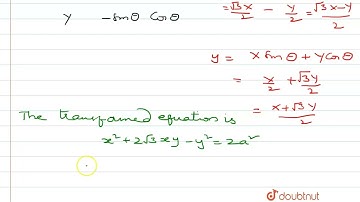 y -sinθ cosθ
= √3x/2 - y/2 = √3x-y/2
y = x sinθ + y cosθ
= x/2 + √3y/2
= x+√3y/2
The transformed equation is
x²+2√3xy-y²=2a²
doubtnut